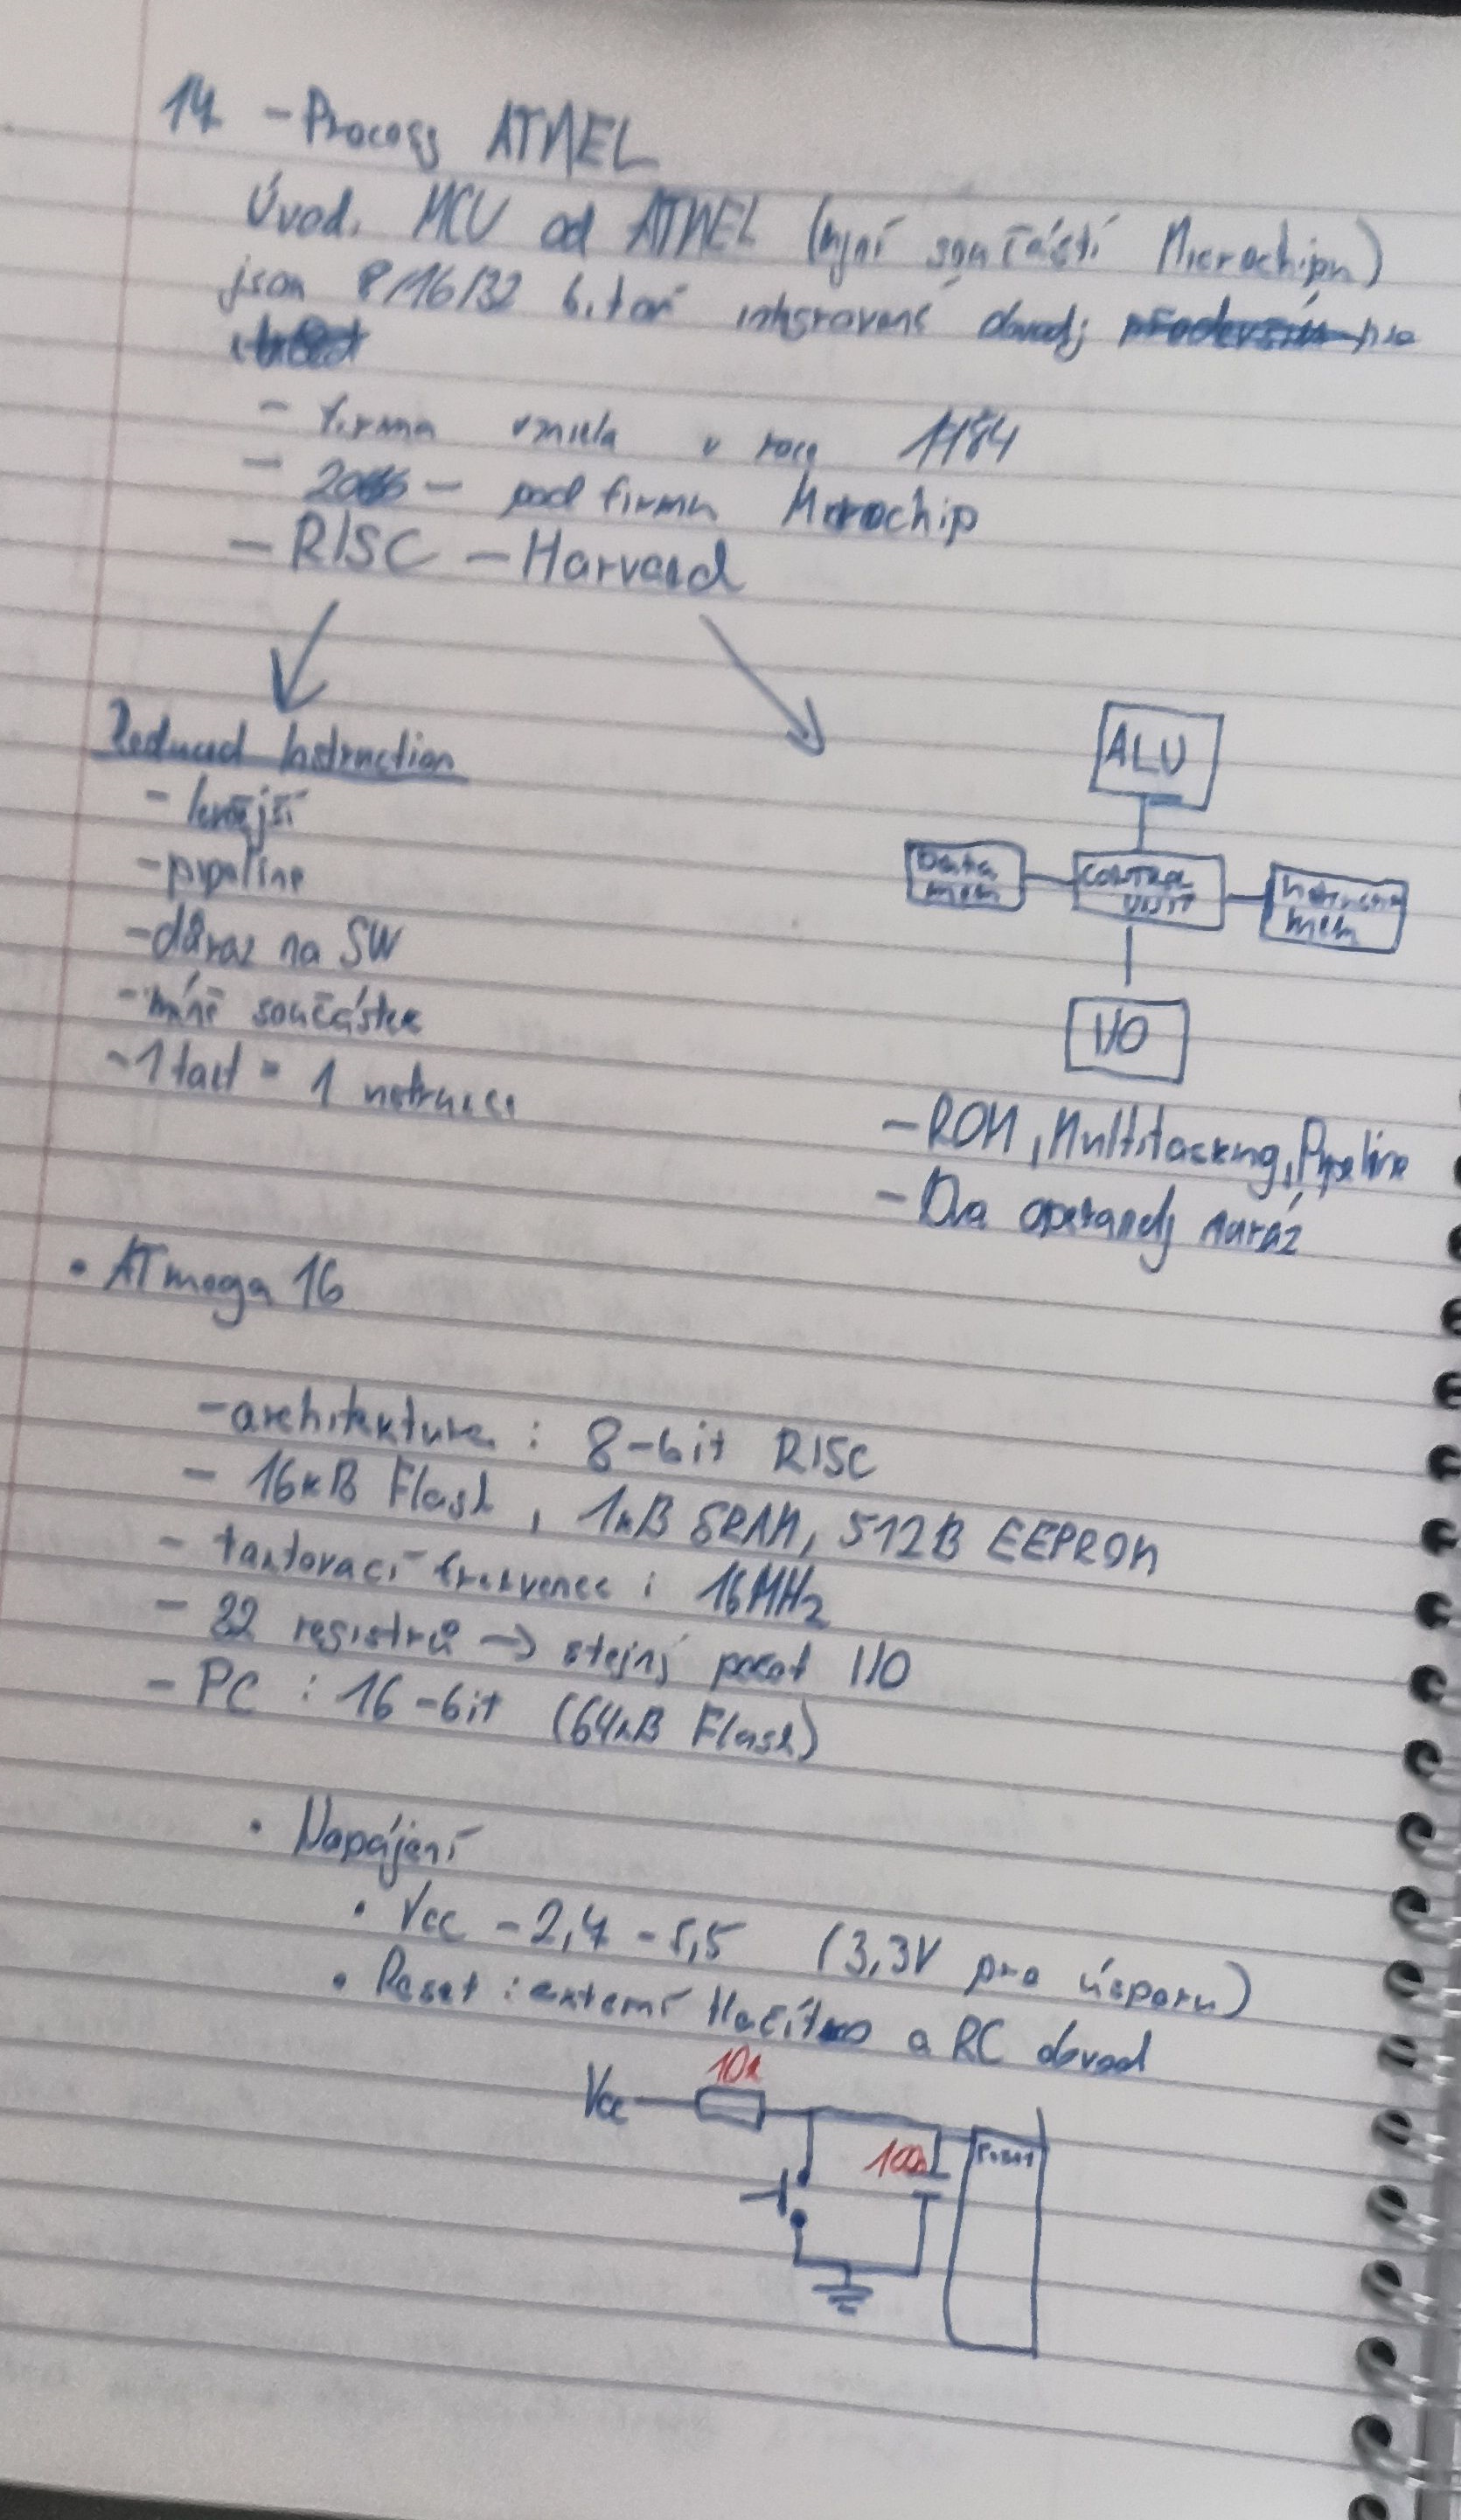 14 - Process ATMEL
Úvod. MCU od ATMEL (nyní součástí Microchipu)
jsou 8/16/32 bitové integrované obvody
- firma vznikla v roce 1984
- 2016 - pod firmu Microchip
- RISC - Harvard
Reduced Instruction
- levnější
- pipeline
- důraz na SW
- méně součástek
- 1 takt = 1 instrukce
ALU
Data mem
CONTROL UNIT
Instruction mem
I/O
- ROM, Multitasking, Pipeline
- Dva operandy naráz
• ATmega 16
- architektura : 8-bit RISC
- 16kB Flash, 1kB SRAM, 512B EEPROM
- taktovací frekvence : 16MHz
- 32 registrů → stejný počet I/O
- PC : 16-bit (64kB Flash)
• Napájení
• Vcc - 2,7 - 5,5 (3,3V pro úsporu)
• Reset : externí tlačítko a RC obvod
10k
Vcc
100n